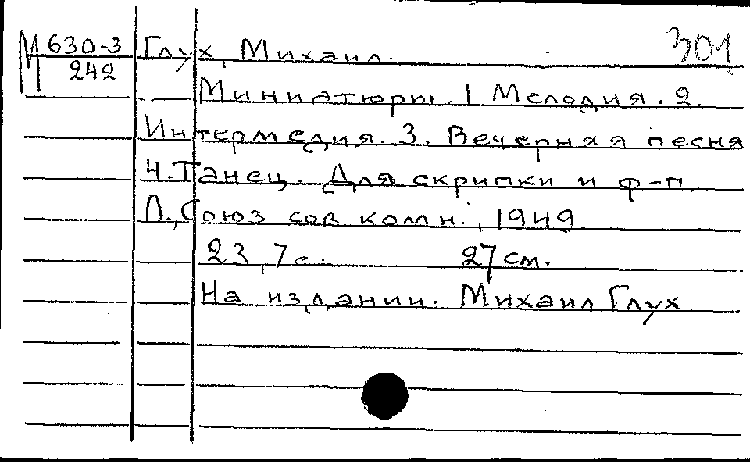 М 630-3 Глух, Михаил 301
242
Миниатюры. 1 Мелодия. 2.
Интермедия. 3. Вечерняя песня
4. Танец. Для скрипки и ф-п.
Л., Союз сов комп., 1949
23, 7 с. 27 см.
На издании. Михаил Глух